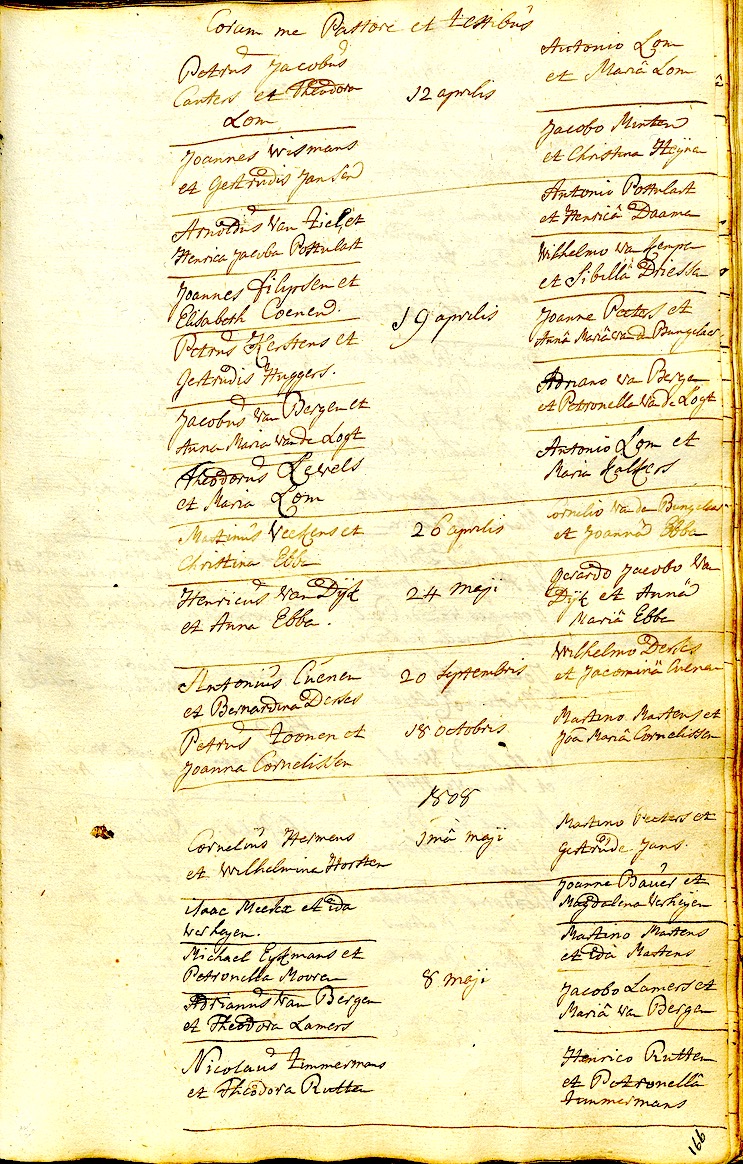 Coram me Pastore et testibus
Petrus Jacobus
Canters et Theodora
Lom
12 aprilis
Antonio Lom
et Mariâ Lom
Joannes Wismans
et Gertrudis Jansen
Jacobo Minten
et Christina Heyne
Arnoldus van Tiel et
Henrica Jacoba Postulart
Antonio Postulart
et Henricâ Daame
Joannes filipsen et
Elisabeth Coenen.
Wilhelmo van Kempe
et Sibillâ Driessa
Petrus Kerstens et
Gertrudis Huggers.
19 aprilis
Joanne Peeters et
Annâ Mariâ van de Bungelaer
Jacobus van Bergen et
Anna Maria van de Logt
Adriano van Bergen
et Petronella van de Logt
Theodorus Lewels
et Maria Lom
Antonio Lom et
Maria Kalkers
Martinus Veekens et
Christina Ebbe
26 aprilis
ornelio van de Bungelaer
et Joannâ Ebba
Henricus van Dijk
et Anna Ebba.
24 maji
Gerardo Jacobo van
Dijk et Annâ
Mariâ Ebbe
Antonius Cuenen
et Bernardina Derkes
20 septembris
Wilhelmo Derkes
et Jacominâ Cuenen
Petrus Toonen et
Joanna Cornelissen
18 octobris
Martino Martens et
Joâ Mariâ Cornelissen
1808
Cornelius Hermens
et Wilhelmina Horsten
1mâ maji
Martino Peeters et
Gertrude Jans.
Isaac Meerkx et Ida
Verheyen.
Joanne Bauer et
Magdalena Verheyen
Michael Eyckmans et
Petronella Mooren
Martino Martens
et Ida Martens
Adrianus van Bergen
et Theodora Lamers
8 maji
Jacobo Lamers et
Mariâ van Bergen
Nicolaus Timmermans
et Theodora Rutten
Henrico Rutten
et Petronellâ
Timmermans
166